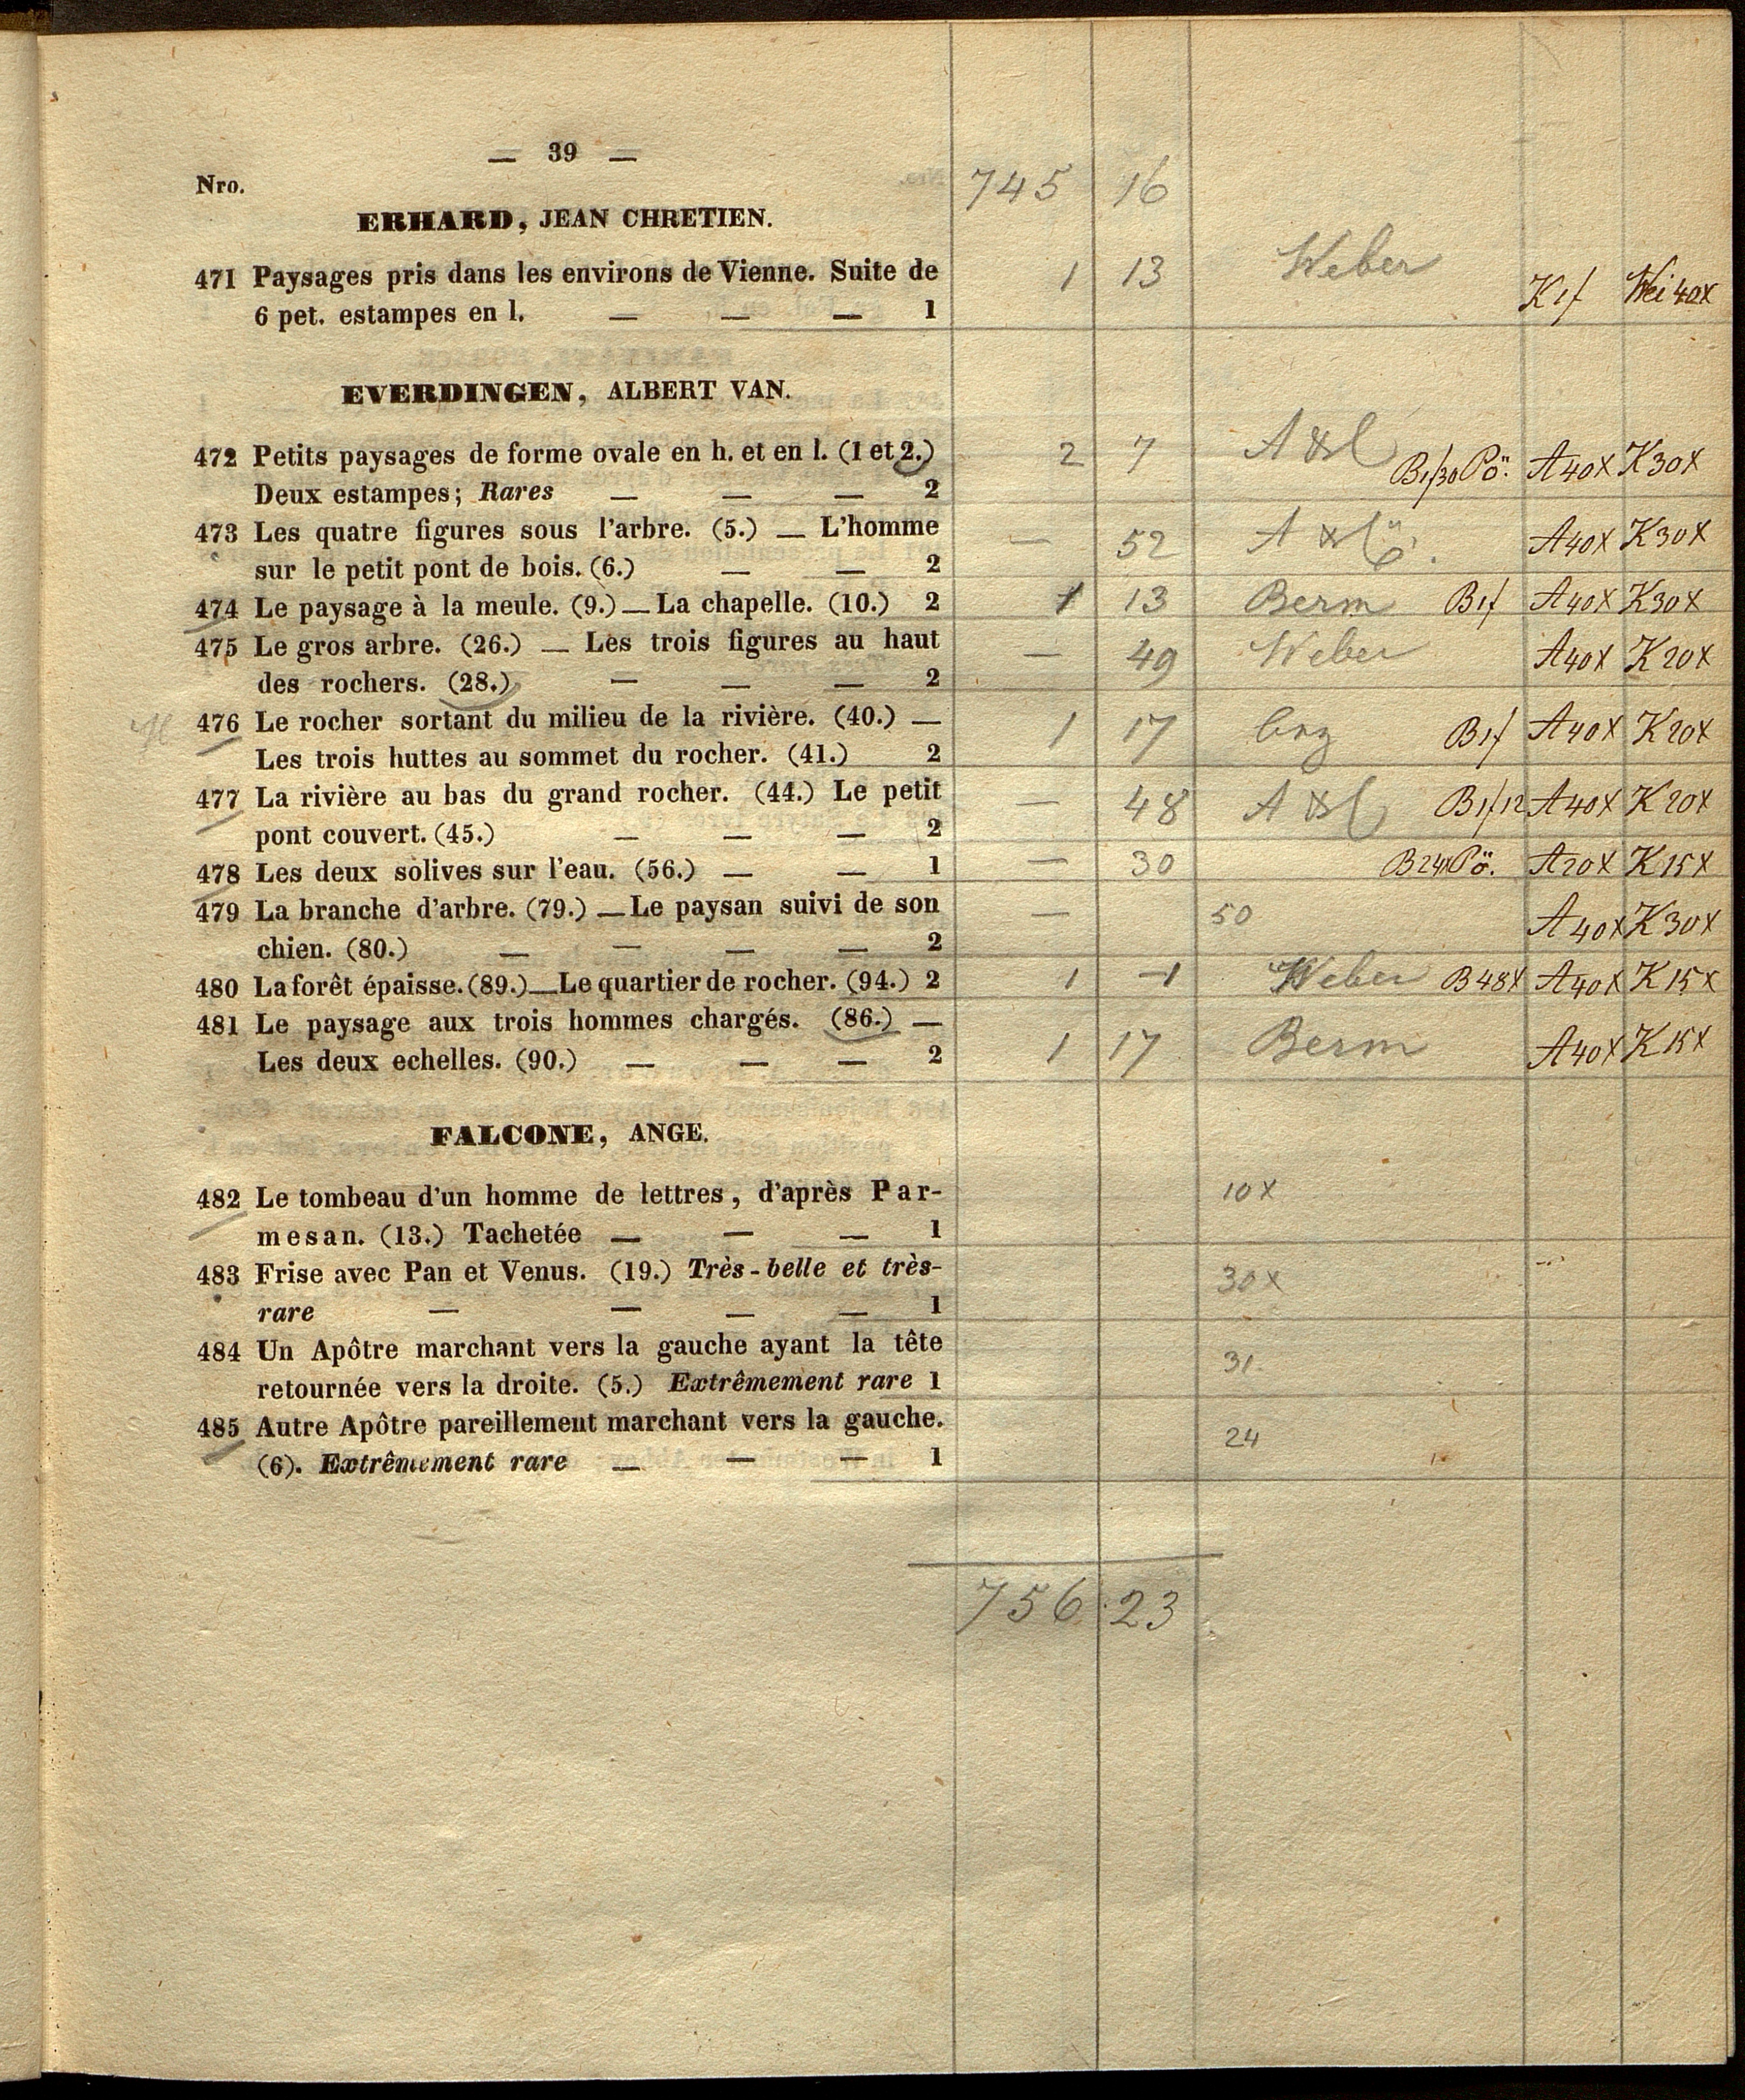 — 39 —
Nro. 745 16
ERHARD, JEAN CHRETIEN.
471 Paysages pris dans les environs de Vienne. Suite de 1 13 Weber
6 pet. estampes en l. — — — 1 K 1f Wei 40x
EVERDINGEN, ALBERT VAN.
472 Petits paysages de forme ovale en h. et en l. (1 et 2.) 2 7 B1f30 Pö. A40x K30x
Deux estampes; Rares — — — 2
473 Les quatre figures sous l'arbre. (5.) — L'homme — 52 A40x K30x
sur le petit pont de bois. (6.) — — 2
474 Le paysage à la meule. (9.) — La chapelle. (10.) 2 1 13 Berm B1f A40x K30x
475 Le gros arbre. (26.) — Les trois figures au haut — 49 Weber A40x K20x
des rochers. (28.) — — — 2
476 Le rocher sortant du milieu de la rivière. (40.) — 1 17 B1f A40x K20x
Les trois huttes au sommet du rocher. (41.) 2
477 La rivière au bas du grand rocher. (44.) Le petit — 48 B1f12 A40x K20x
pont couvert. (45.) — — — 2
478 Les deux solives sur l'eau. (56.) — — 1 — 30 B24x Pö. A20x K15x
479 La branche d'arbre. (79.) — Le paysan suivi de son — 50 A40x K30x
chien. (80.) — — — — 2
480 La forêt épaisse. (89.) — Le quartier de rocher. (94.) 2 1 —1 Weber B48x A40x K15x
481 Le paysage aux trois hommes chargés. (86.) —
Les deux echelles. (90.) — — — 2 1 17 Berm A40x K15x
FALCONE, ANGE.
482 Le tombeau d'un homme de lettres, d'après Par- 10x
mesan. (13.) Tachetée — — — 1
483 Frise avec Pan et Venus. (19.) Très-belle et très- 30x
rare — — — — 1
484 Un Apôtre marchant vers la gauche ayant la tête 31
retournée vers la droite. (5.) Extrêmement rare 1
485 Autre Apôtre pareillement marchant vers la gauche. 24
(6). Extrêmement rare — — — 1
756 23